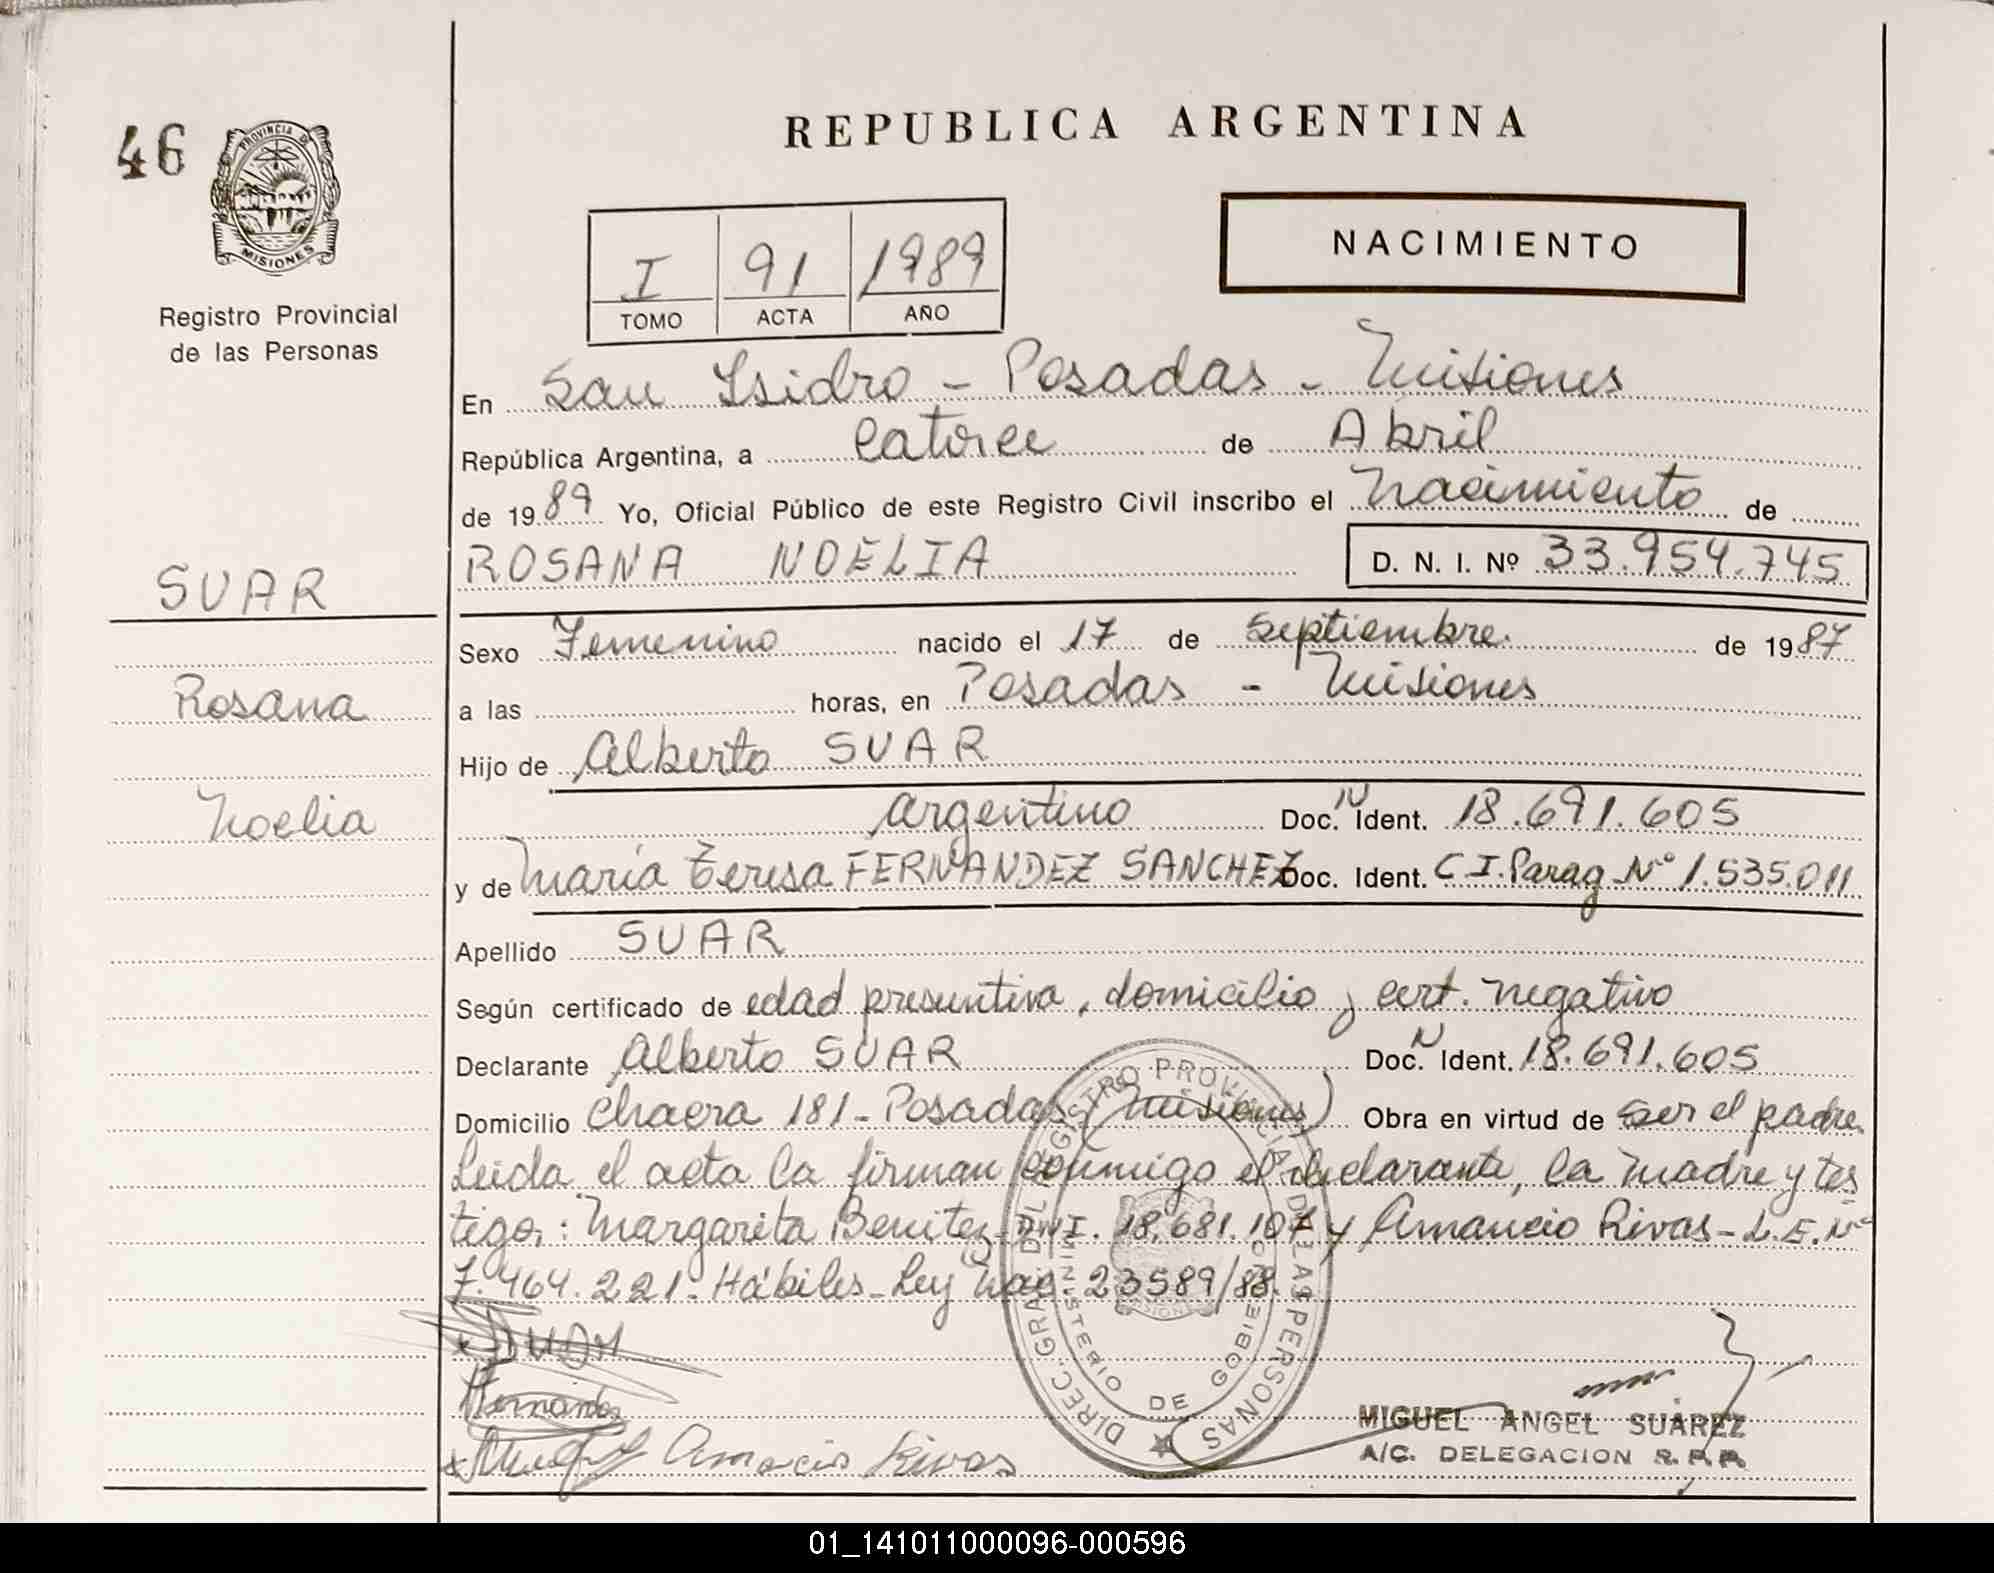 46
PROVINCIA DE
MISIONES
Registro Provincial
de las Personas
REPUBLICA ARGENTINA
I 91 1989
TOMO ACTA AÑO
NACIMIENTO
En San Isidro - Posadas - Misiones
República Argentina, a Catorce de Abril
de 1989 Yo, Oficial Público de este Registro Civil inscribo el Nacimiento de
ROSANA NOELIA D. N. I. Nº 33.954.745
SUAR
Rosana
Noelia
Sexo Femenino nacido el 17 de Septiembre. de 1987
a las horas, en Posadas - Misiones
Hijo de Alberto SUAR
Argentino Doc. N Ident. 18.691.605
y de María Teresa FERNANDEZ SANCHEZ Doc. Ident. C I. Parag Nº 1.535.011
Apellido SUAR
Según certificado de edad presuntiva, domicilio y cert. negativo
Declarante Alberto SUAR Doc. N Ident. 18.691.605
Domicilio Chacra 181 - Posadas (Misiones) Obra en virtud de ser el padre
Leida el acta la firman conmigo el declarante, la madre y tes
tigos: Margarita Benitez - DNI. 18.681.107 y Amancio Rivas - L.E. Nº
7.464.221 - Hábiles - Ley Nac. 23589/88.
Fernandez
Amancio Rivas
DIREC. GRAL. DEL REGISTRO PROVINCIAL DE LAS PERSONAS
MINISTERIO DE GOBIERNO
MISIONES
MIGUEL ANGEL SUÁREZ
A/C. DELEGACION R. P. P.
01_141011000096-000596